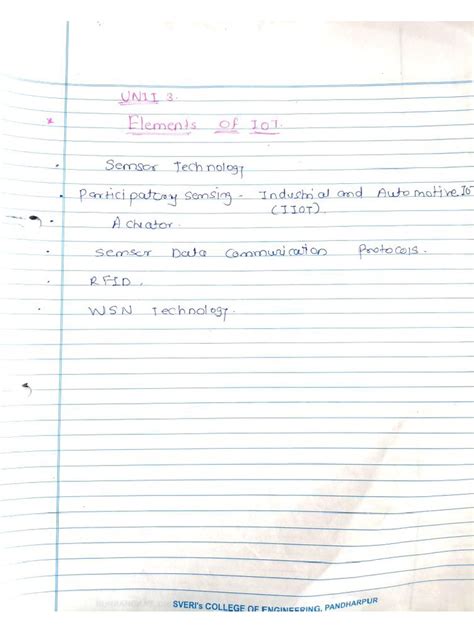 UNIT 3.
* Elements of IOT.
• Sensor Technology
• Participatory sensing - Industrial and Automotive Io
(IIOT).
• Actuator.
• Sensor Data Communication Protocols.
• RFID.
• WSN Technology.
SVERI's COLLEGE OF ENGINEERING, PANDHARPUR